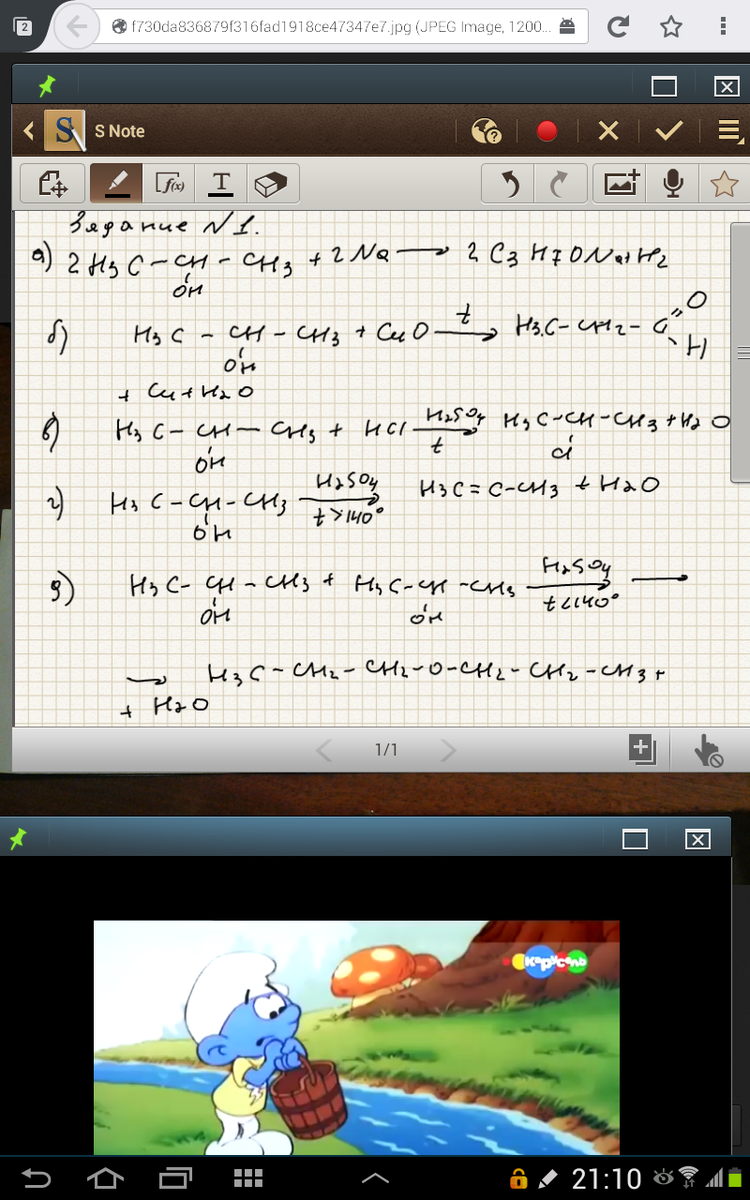 2
f730da836879f316fad1918ce47347e7.jpg (JPEG Image, 1200...
S Note
f(x)
T
Задание N1.
а) 2H3C-CH-CH3 + 2Na → 2C3H7ONa+H2
OH
б) H3C-CH-CH3 + CuO t→ H3C-CH2-C=O
OH -H
+ Cu+H2O
в) H3C-CH-CH3 + HCl H2SO4 t→ H3C-CH-CH3+H2O
OH Cl
г) H3C-CH-CH3 H2SO4 t>140°→ H3C=C-CH3 + H2O
OH
д) H3C-CH-CH3 + H3C-CH-CH3 H2SO4 t<140°→ →
OH OH
→ H3C-CH2-CH2-O-CH2-CH2-CH3+
+ H2O
1/1
Карусель
21:10